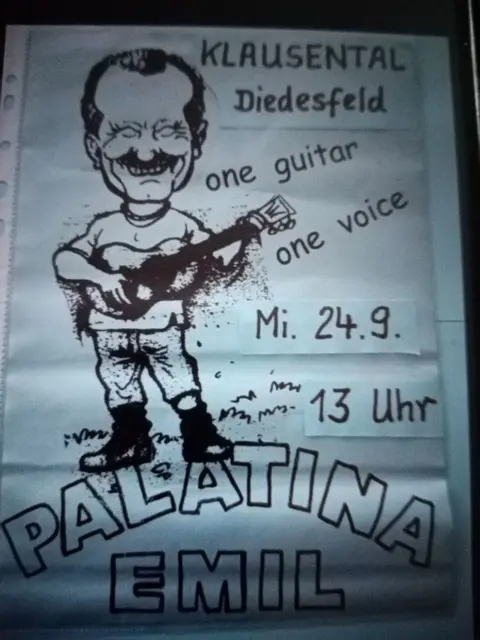 KLAUSENTAL
Diedesfeld
one guitar
one voice
Mi. 24.9.
13 Uhr
PALATINA
EMIL